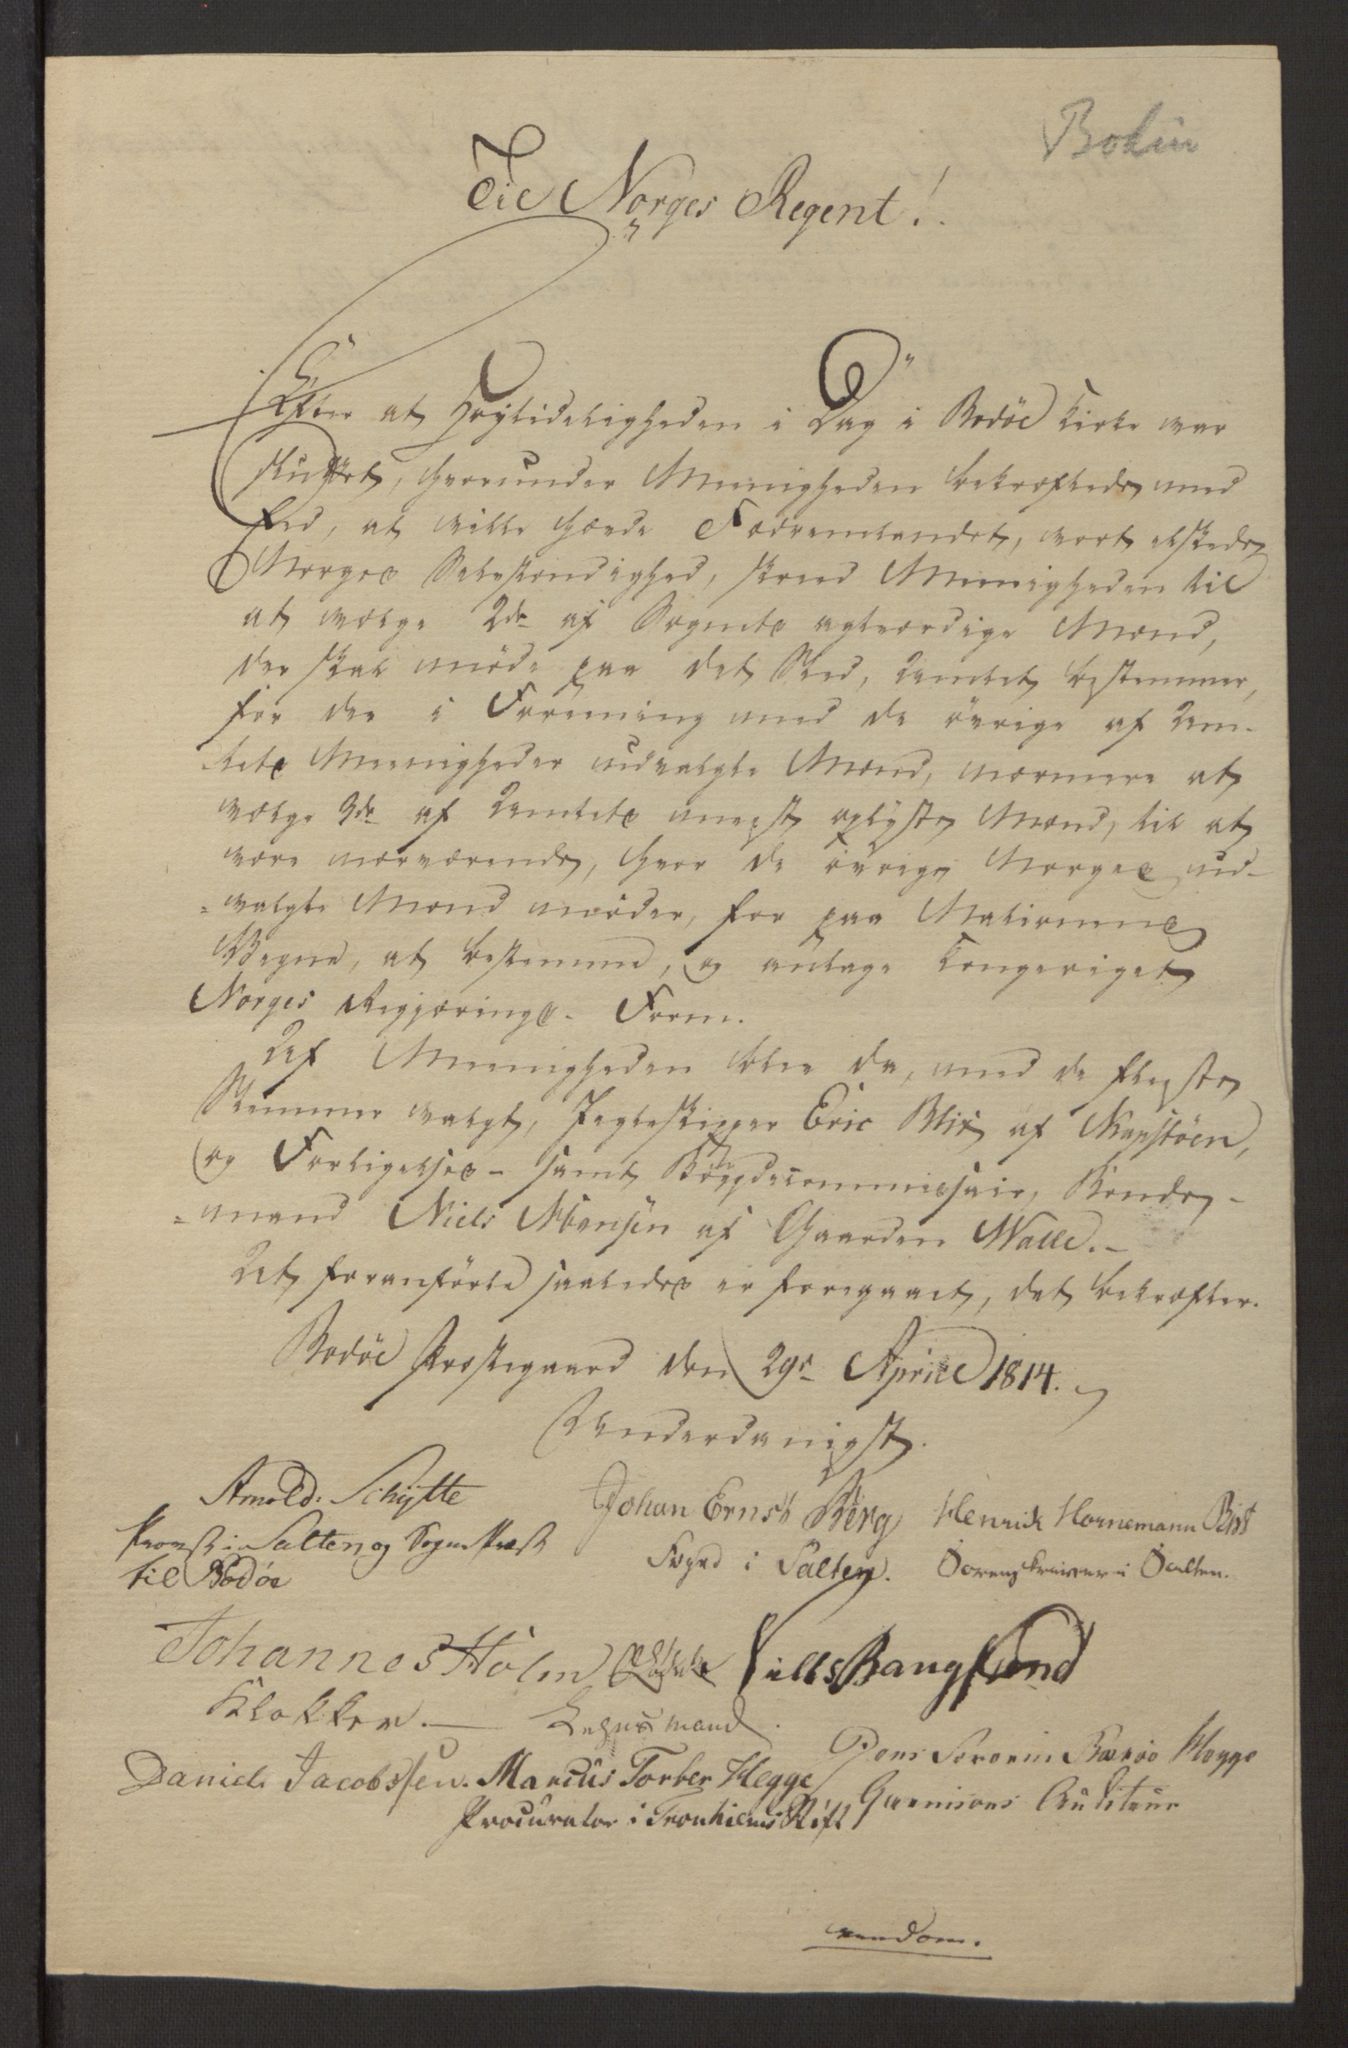 Bodin
Til Norges Regent!
Efter at Høytideligheden i Dag i Bodöe Kirke var
sluttet, hvorunder Meenigheden bekræftede med
Eed, at ville hævde Fædrenelandet, vort elskede
Norges Selvstændighed, skreed Meenigheden til
at vælge 2de af Sognets agtværdige Mænd,
der skal möde paa det Sted, Amtet bestemmer,
for der i Foreening med de övrige af Am-
tets Meenigheder udvalgte Mænd, nærmere at
vælge 3de af Amtets meest oplyste Mænd, til at
være nærværende, hvor de övrige Norges ud-
=valgte Mænd möder, for paa Nationens
Vegne, at bestemme, og antage Kongeriget
Norges Regjærings-Form.
Af Meenigheden blev da, med de fleeste
Stemmer valgt, Jægteskipper Eric Blix af Napstöen,
og Forligelses- samt Böygdecommissair, Bonde-
=mand Niels Monsen af Gaarden Walle.-
At foranförte saaledes er foregaaet, det bekræfter.
Bodöe Præstegaard den 29de April 1814.
Underdanigst.
Arnold Schytte
Provst i Salten og Sogne Præst
til Bodöe
Johan Ernst Berg
Foged i Salten.
Henrik Hornemann Blix
Sorenskriver i Salten.
Johannes Holm
Klokker.
Lehnsmand.
Nills Bang Lund
Daniel Jacobssen.
Marcus Torber Hegge
Procurator i Tronhiems Stift
Jens Severin Hegge
Garnisons Auditeur
vendom.